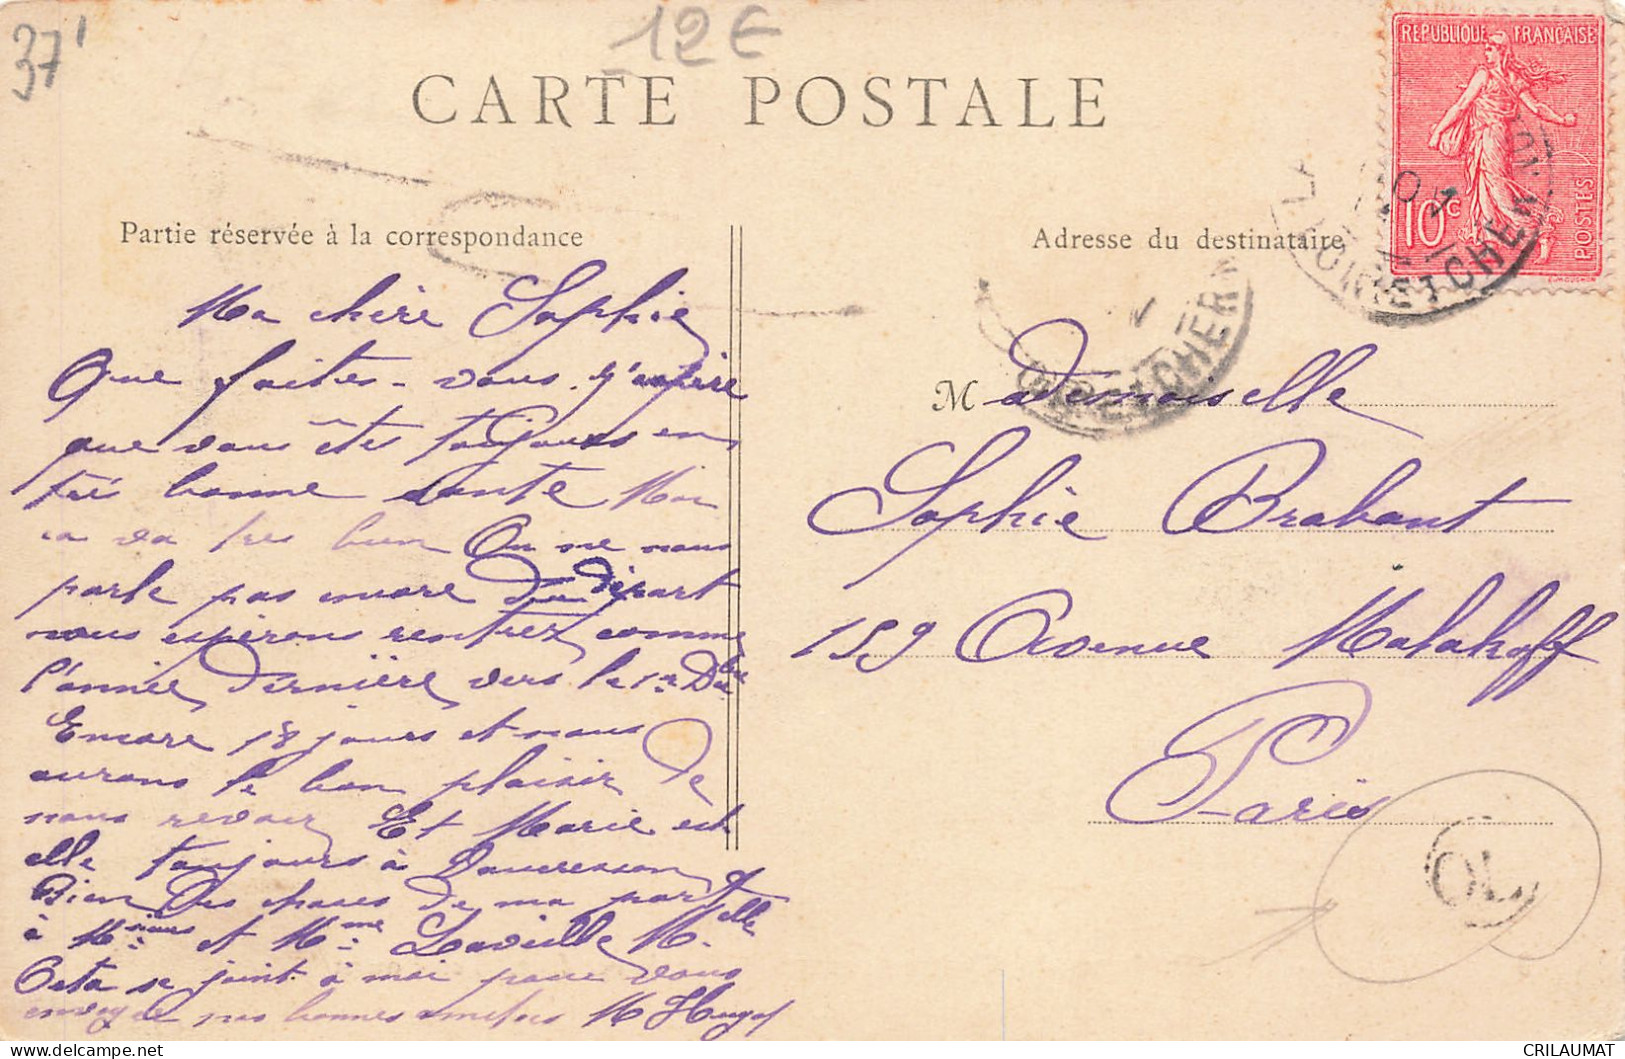 37'
12€
CARTE POSTALE
REPUBLIQUE FRANÇAISE
10c
POSTES
LOIR-ET-CHER
Partie réservée à la correspondance
Adresse du destinataire
LOIR-ET-CHER
Ma chère Sophie
Que faites-vous j'espère
que vous êtes toujours en
très bonne santé Moi
ca va tres bien On ne nous
parle pas encore du départ
nous espérons rentrez comme
l'année dernière vers le 1er Dbre
Encore 18 jours et nous
aurons le bon plaisir de
nous revoir Et Marie est
elle toujours à Vaucresson
Bien des choses de ma part
à Mr et Mme Laville Melle
se joint à moi pour vous
envoyer nos bonnes amitiés M
Mademoiselle
Sophie Brabant
159 Avenue Malakoff
Paris
OL
CRILAUMAT